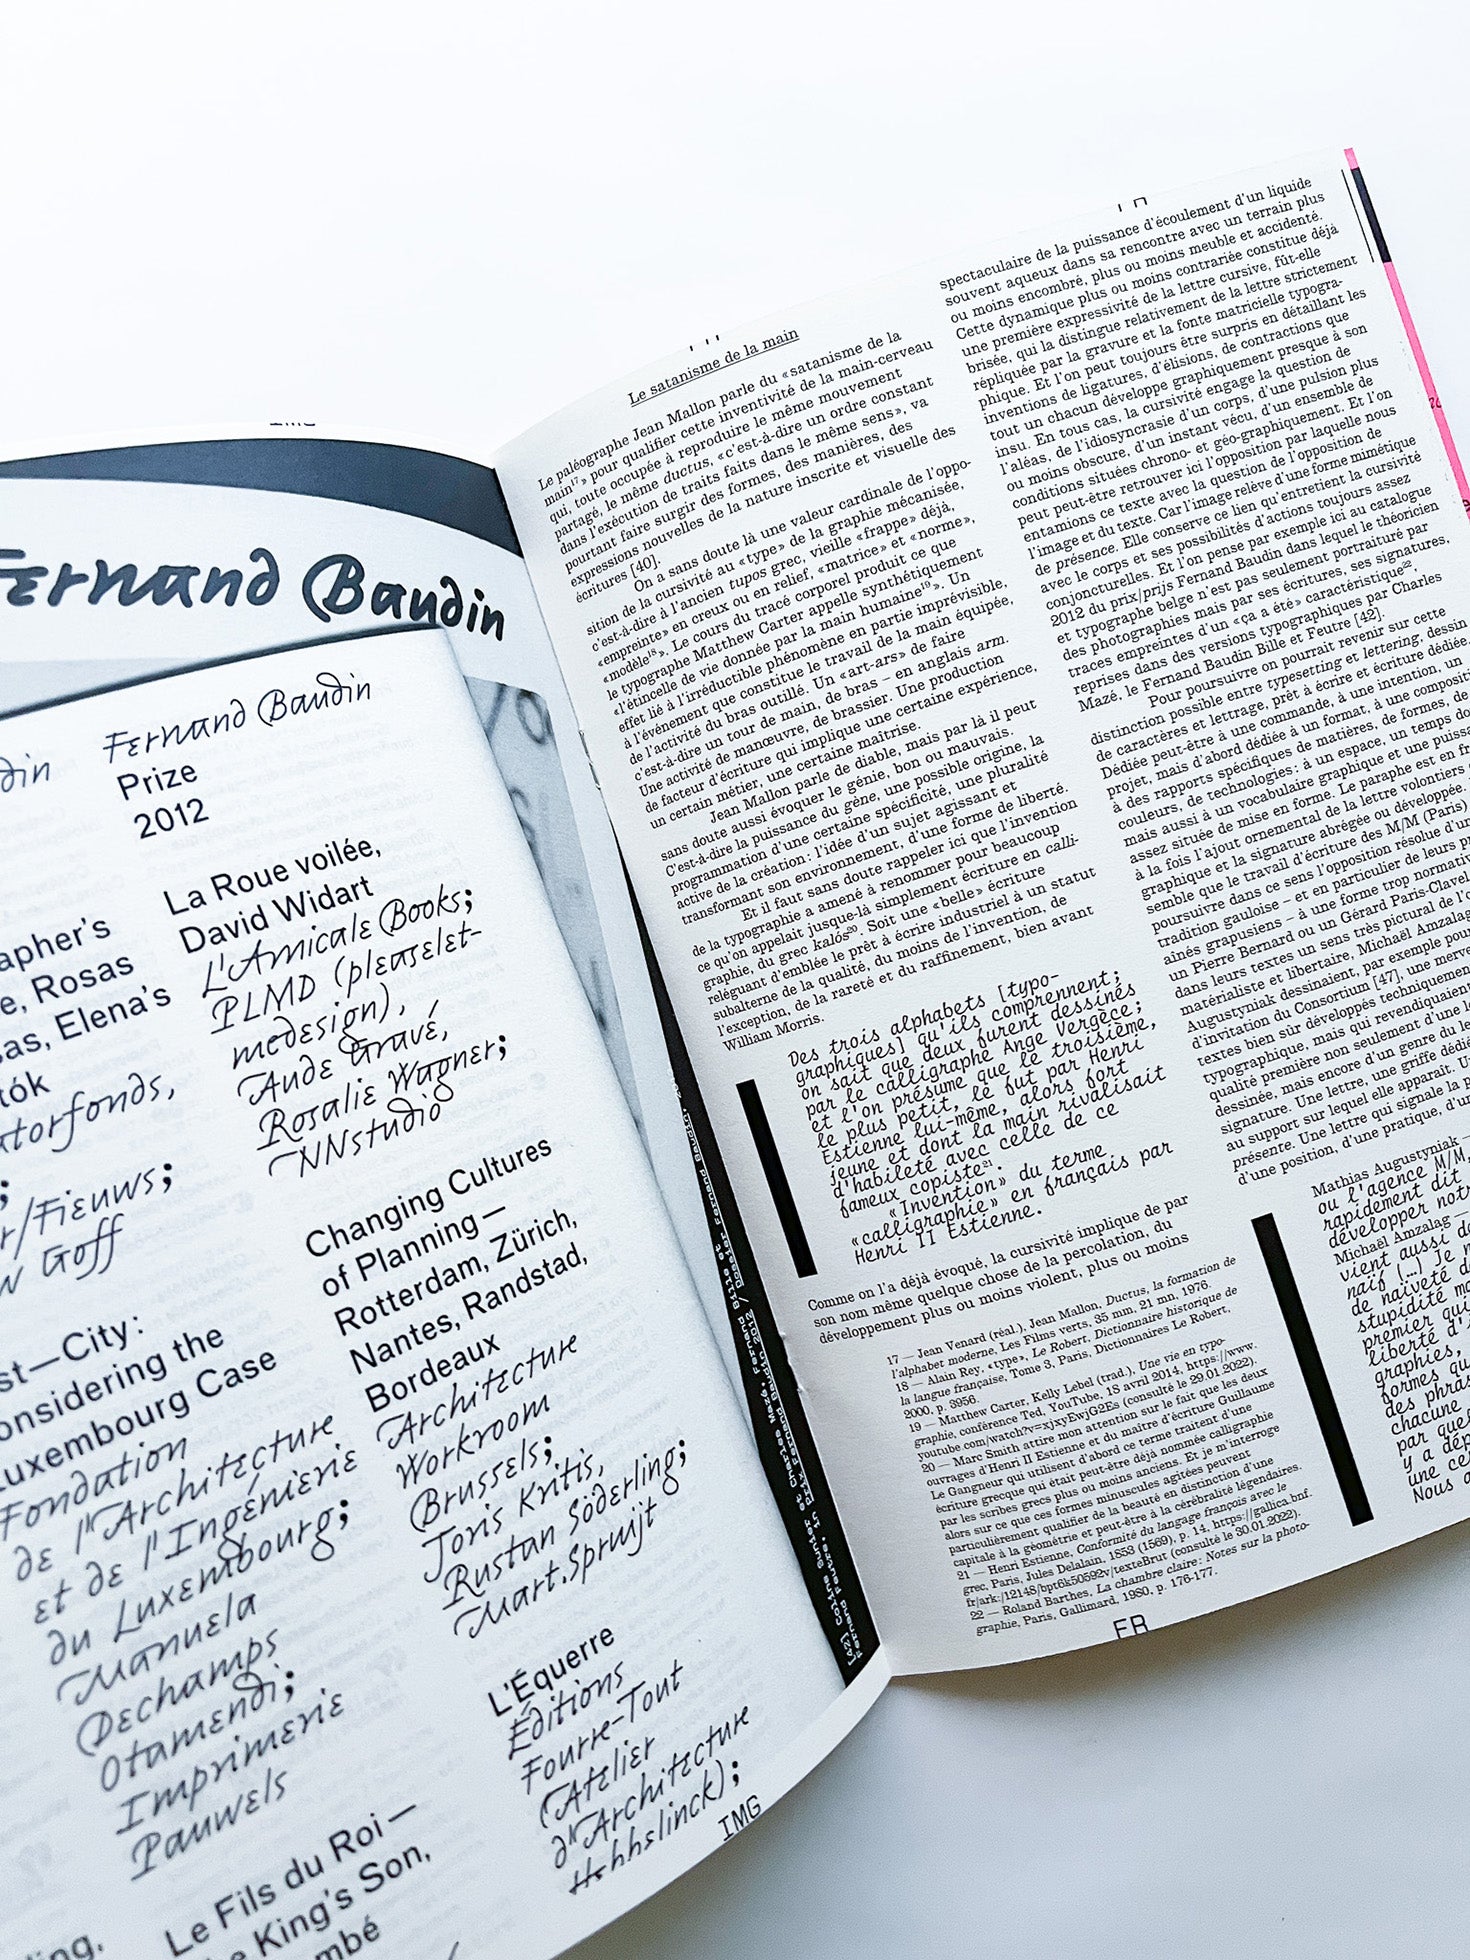 Fernand Baudin
Fernand Baudin
Prize
2012
La Roue voilée,
David Widart
L'Amicale Books;
PLMD (pleaselet-
medesign),
Aude Gravé,
Rosalie Wagner;
NNstudio
Changing Cultures
of Planning—
Rotterdam, Zürich,
Nantes, Randstad,
Bordeaux
Architecture
Workroom
Brussels;
Joris Kritis,
Rustan Söderling;
Mart.Spruijt
L'Équerre
Éditions
Fourre-Tout
(Atelier
d'Architecture
IMG
apher's
e, Rosas
sas, Elena's
tók
torfonds,
r/Fieuws;
w Goff
st—City:
onsidering the
Luxembourg Case
Fondation
de l'Architecture
et de l'Ingénierie
du Luxembourg;
Manuela
Dechamps
Otamendi;
Imprimerie
Pauwels
Le Fils du Roi—
e King's Son,
mbé
Le satanisme de la main
Le paléographe Jean Mallon parle du «satanisme de la
main¹⁷» pour qualifier cette inventivité de la main-cerveau
qui, toute occupée à reproduire le même mouvement
partagé, le même ductus, «c'est-à-dire un ordre constant
dans l'exécution de traits faits dans le même sens», va
pourtant faire surgir des formes, des manières, des
expressions nouvelles de la nature inscrite et visuelle des
écritures [40].
On a sans doute là une valeur cardinale de l'oppo-
sition de la cursivité au «type» de la graphie mécanisée,
c'est-à-dire à l'ancien tupos grec, vieille «frappe» déjà,
«empreinte» en creux ou en relief, «matrice» et «norme»,
«modèle¹⁸». Le cours du tracé corporel produit ce que
le typographe Matthew Carter appelle synthétiquement
«l'étincelle de vie donnée par la main humaine¹⁹». Un
effet lié à l'irréductible phénomène en partie imprévisible,
à l'événement que constitue le travail de la main équipée,
de l'activité du bras outillé. Un «art-ars» de faire
c'est-à-dire un tour de main, de bras – en anglais arm.
Une activité de manœuvre, de brassier. Une production
de facteur d'écriture qui implique une certaine expérience,
un certain métier, une certaine maîtrise.
Jean Mallon parle de diable, mais par là il peut
sans doute aussi évoquer le génie, bon ou mauvais.
C'est-à-dire la puissance du gène, une possible origine, la
programmation d'une certaine spécificité, une pluralité
active de la création: l'idée d'un sujet agissant et
transformant son environnement, d'une forme de liberté.
Et il faut sans doute rappeler ici que l'invention
de la typographie a amené à renommer pour beaucoup
ce qu'on appelait jusque-là simplement écriture en calli-
graphie, du grec kalós²⁰. Soit une «belle» écriture
reléguant d'emblée le prêt à écrire industriel à un statut
subalterne de la qualité, du moins de l'invention, de
l'exception, de la rareté et du raffinement, bien avant
William Morris.
Des trois alphabets [typo-
graphiques] qu'ils comprennent;
on sait que deux furent dessinés
par le calligraphe Ange Vergèce;
et l'on présume que le troisième,
le plus petit, le fut par Henri
Estienne lui-même, alors fort
jeune et dont la main rivalisait
d'habileté avec celle de ce
fameux copiste²¹.
«Invention» du terme
«calligraphie» en français par
Henri II Estienne.
Comme on l'a déjà évoqué, la cursivité implique de par
son nom même quelque chose de la percolation, du
développement plus ou moins violent, plus ou moins
17 — Jean Venard (réal.), Jean Mallon, Ductus, la formation de
l'alphabet moderne, Les Films verts, 35 mm, 21 mn, 1976.
18 — Alain Rey, «type», Le Robert, Dictionnaire historique de
la langue française, Tome 3, Paris, Dictionnaires Le Robert,
2000, p. 3956.
19 — Matthew Carter, Kelly Lebel (trad.), Une vie en typo-
graphie, conférence Ted, YouTube, 18 avril 2014, https://www.
youtube.com/watch?v=xjxyEwjG2Es (consulté le 29.01.2022).
20 — Marc Smith attire mon attention sur le fait que les deux
ouvrages d'Henri II Estienne et du maître d'écriture Guillaume
Le Gangneur qui utilisent d'abord ce terme traitent d'une
écriture grecque qui était peut-être déjà nommée calligraphie
par les scribes grecs plus ou moins anciens. Et je m'interroge
alors sur ce que ces formes minuscules agitées peuvent
particulièrement qualifier de la beauté en distinction d'une
capitale à la géométrie et peut-être à la cérébralité légendaires.
21 — Henri Estienne, Conformité du langage français avec le
grec, Paris, Jules Delalain, 1853 (1569), p. 14, https://gallica.bnf.
fr/ark:/12148/bpt6k50592v/texteBrut (consulté le 30.01.2022).
22 — Roland Barthes, La chambre claire: Notes sur la photo-
graphie, Paris, Gallimard, 1980, p. 176-177.
FR
spectaculaire de la puissance d'écoulement d'un liquide
souvent aqueux dans sa rencontre avec un terrain plus
ou moins encombré, plus ou moins meuble et accidenté.
Cette dynamique plus ou moins contrariée constitue déjà
une première expressivité de la lettre cursive, fût-elle
brisée, qui la distingue relativement de la lettre strictement
répliquée par la gravure et la fonte matricielle typogra-
phique. Et l'on peut toujours être surpris en détaillant les
inventions de ligatures, d'élisions, de contractions que
tout un chacun développe graphiquement presque à son
insu. En tous cas, la cursivité engage la question de
l'aléas, de l'idiosyncrasie d'un corps, d'une pulsion plus
ou moins obscure, d'un instant vécu, d'un ensemble de
conditions situées chrono- et géo-graphiquement. Et l'on
peut peut-être retrouver ici l'opposition par laquelle nous
entamions ce texte avec la question de l'opposition de
l'image et du texte. Car l'image relève d'une forme mimétique
de présence. Elle conserve ce lien qu'entretient la cursivité
avec le corps et ses possibilités d'actions toujours assez
conjoncturelles. Et l'on pense par exemple ici au catalogue
2012 du prix/prijs Fernand Baudin dans lequel le théoricien
et typographe belge n'est pas seulement portraituré par
des photographies mais par ses écritures, ses signatures,
traces empreintes d'un «ça a été» caractéristique²²,
reprises dans des versions typographiques par Charles
Mazé, le Fernand Baudin Bille et Feutre [42].
Pour poursuivre on pourrait revenir sur cette
distinction possible entre typesetting et lettering, dessin
de caractères et lettrage, prêt à écrire et écriture dédiée.
Dédiée peut-être à une commande, à une intention, un
projet, mais d'abord dédiée à un format, à une compositi
à des rapports spécifiques de matières, de formes, de
couleurs, de technologies: à un espace, un temps do
mais aussi à un vocabulaire graphique et une puissa
assez située de mise en forme. Le paraphe est en fr
à la fois l'ajout ornemental de la lettre volontiers c
graphique et la signature abrégée ou développée.
semble que le travail d'écriture des M/M (Paris)
poursuivre dans ce sens l'opposition résolue d'un
tradition gauloise – et en particulier de leurs pr
ainés grapusiens – à une forme trop normativ
un Pierre Bernard ou un Gérard Paris-Clavel
dans leurs textes un sens très pictural de l'o
matérialiste et libertaire, Michaël Amzalag
Augustyniak dessinaient, par exemple pour
d'invitation du Consortium [47], une merve
textes bien sûr développés techniquemen
typographique, mais qui revendiquaient
qualité première non seulement d'une le
dessinée, mais encore d'un genre du le
signature. Une lettre, une griffe dédié
au support sur lequel elle apparaît. U
présente. Une lettre qui signale la p
d'une position, d'une pratique, d'un
Mathias Augustyniak —
ou l'agence M/M,
rapidement dit
développer notr
Michaël Amzalag —
vient aussi de
naïf (...) Je n
de naïveté d
stupidité mo
premier qui
liberté d'i
graphies,
formes qu
des phras
chacune
par que
y a dép
une cer
Nous a